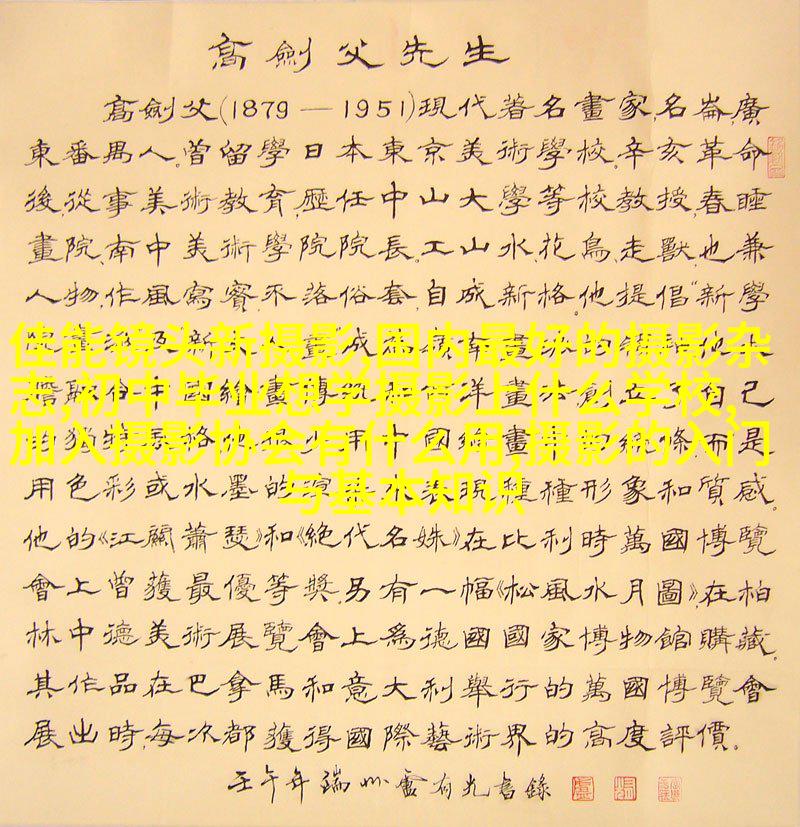 高劍父先生
高劍父(1879—1951)現代著名畫家,名崙,廣
東番禺人。曾留學日本東京美術學校。辛亥革命
後,從事美術教育,歷任中山大學等校教授,春睡
畫院、南中美術學院院長。工山水、花鳥、走獸,也兼
人物,作風寫實,不落俗套,自成新格。他提倡“新學
佳能镜头新摄影,国内最好的摄影杂
志,初中毕业想学摄影上什么学校,
加入摄影协会有什么用,摄影的入门
与基本知识
用色彩或水墨的 種種形象和質感。
他的《江關蕭瑟》和《絕代名姝》在比利時萬國博覽
會上曾獲最優等獎。另有一幅《松風水月圖》,在柏
林中德美術展覽會上為德國國家博物館購藏。
其作品在巴拿馬和意大利舉行的萬國博覽會
展出時,每次都獲得國際藝術界的高度評價。
壬午年端州盧有光書錄